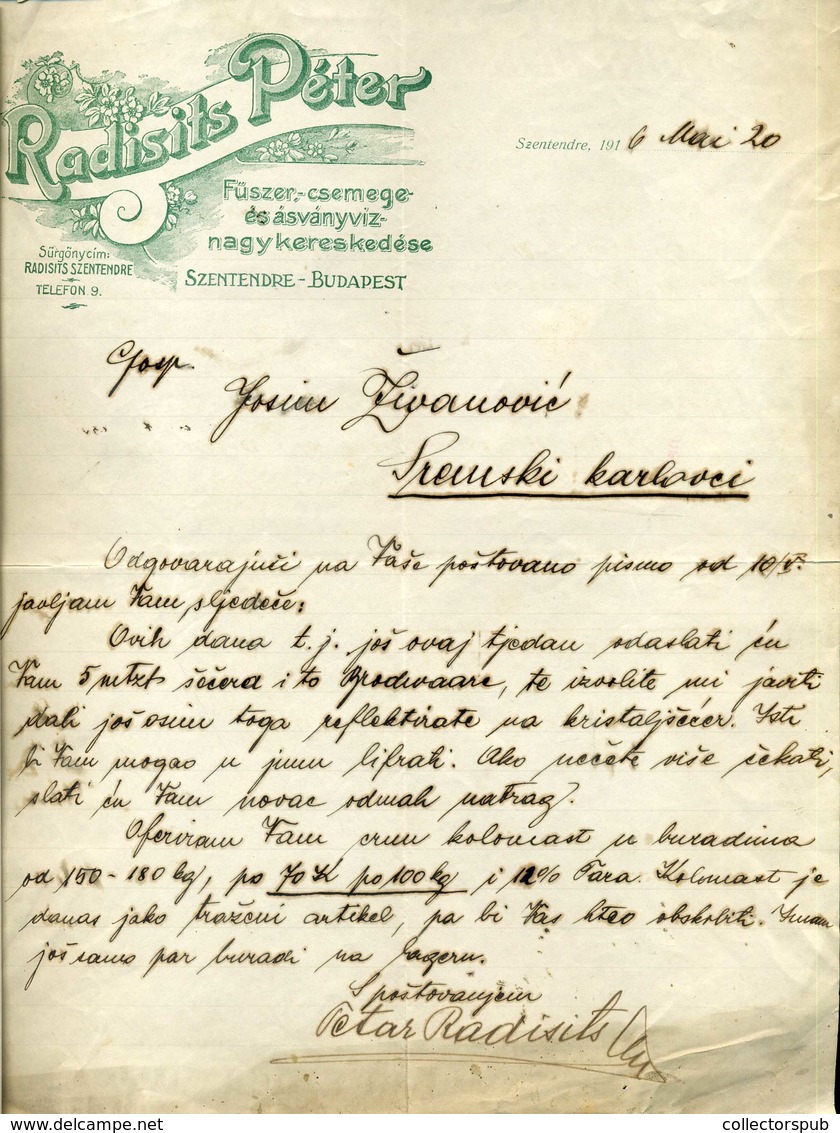 Radisits Péter
Fűszer,-csemege-
és ásványvíz-
nagykereskedése
Sürgönycím:
RADISITS SZENTENDRE
TELEFON 9.
SZENTENDRE-BUDAPEST
Szentendre, 1916 Mai 20
Gosp.
Josim Živanović
Sremski karlovci
Odgovarajući na Vaše poštovano pismo od 10/V.
javljam Vam sljedeće:
Ovih dana t. j. još ovaj tjedan odaslati ću
Vam 5 mtzt šećera i to Brodwaare, te izvolite mi javiti
dali još osim toga reflektirate na kristalšećer. Isti
bi Vam mogao u junu lifrati. Ako nećete više čekati,
slati ću Vam novac odmah natrag.
Oferiram Vam crnu kolomast u buradima
od 150-180 kg, po 70 K po 100 kg i 12% Tara. Kolomast je
danas jako traženi artikel, pa bi Vas hteo obskrbiti. Imam
još samo par buradi na lageru.
S poštovanjem
Petar Radisits
collectorspub